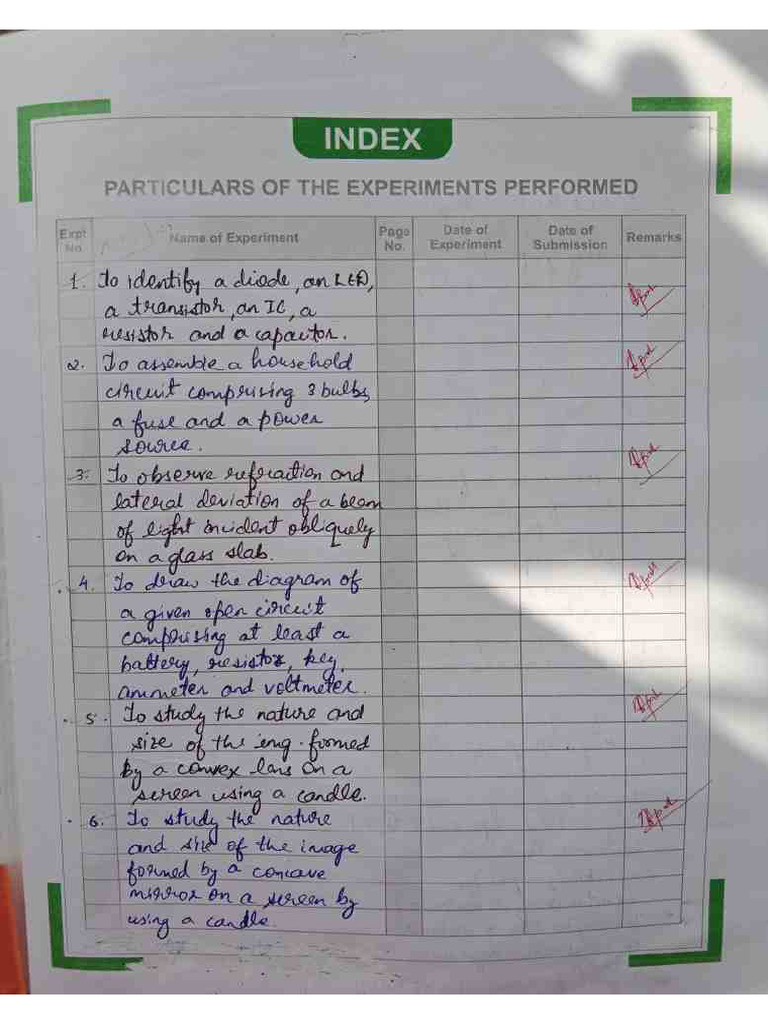 INDEX
PARTICULARS OF THE EXPERIMENTS PERFORMED
Expt No. Name of Experiment Page No. Date of Experiment Date of Submission Remarks
1. To identify a diode, an LED,
a transistor, an IC, a
resistor and a capacitor.
2. To assemble a household
circuit comprising 3 bulbs,
a fuse and a power
source.
3. To observe refraction and
lateral deviation of a beam
of light incident obliquely
on a glass slab.
4. To draw the diagram of
a given open circuit
comprising at least a
battery, resistor, key,
ammeter and voltmeter.
5. To study the nature and
size of the img. formed
by a convex lens on a
screen using a candle.
6. To study the nature
and size of the image
formed by a concave
mirror on a screen by
using a candle.